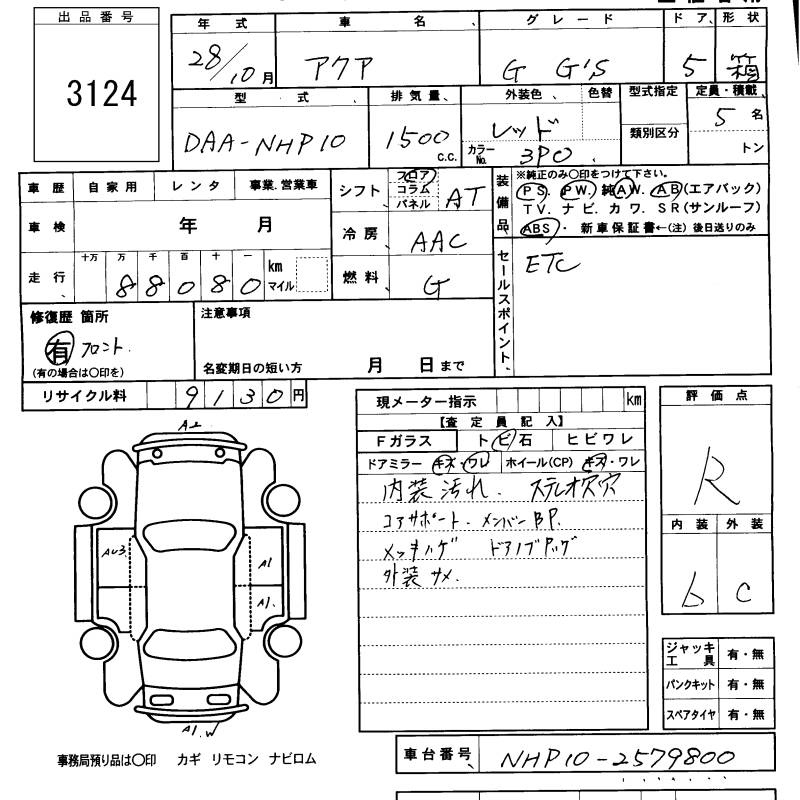 出品番号
3124
年式 車名 グレード ドア、形状
28/10月 アクア G G'S 5 箱
型式 排気量、 外装色、 色替 型式指定 定員・積載、
DAA-NHP10 1500 c.c. レッド 類別区分 5名
カラーNo. 3P0 トン
車歴 自家用 レンタ 事業.営業車
シフト、 フロア コラム パネル AT
装備品、
※純正のみ〇印をつけて下さい。
PS. PW. 純AW. AB(エアバック)
TV. ナビ. カワ. SR(サンルーフ)
ABS・ 新車保証書←(注)後日送りのみ
車検 年 月
冷房 AAC
走行、 十万 万 千 百 十 一 km マイル
8 8 0 8 0
燃料、 G
セールスポイント、
ETC
修復歴 箇所
有 フロント.
(有の場合は〇印を)
注意事項
名変期日の短い方 月 日まで
リサイクル料 9130円
現メーター指示 km
【査定員記入】
Fガラス トビ石 ヒビワレ
ドアミラー キズ・ワレ ホイール(CP) キズ・ワレ
内装汚れ. ステレオ穴
コアサポート. メンバーBP.
メッキハゲ ドアノブハゲ
外装サメ.
評価点
R
内装 外装
b C
A2
AU3
A1
A1.
A1.W
ジャッキ工具 有・無
パンクキット 有・無
スペアタイヤ 有・無
事務局預り品は〇印 カギ リモコン ナビロム
車台番号、 NHP10-2579800